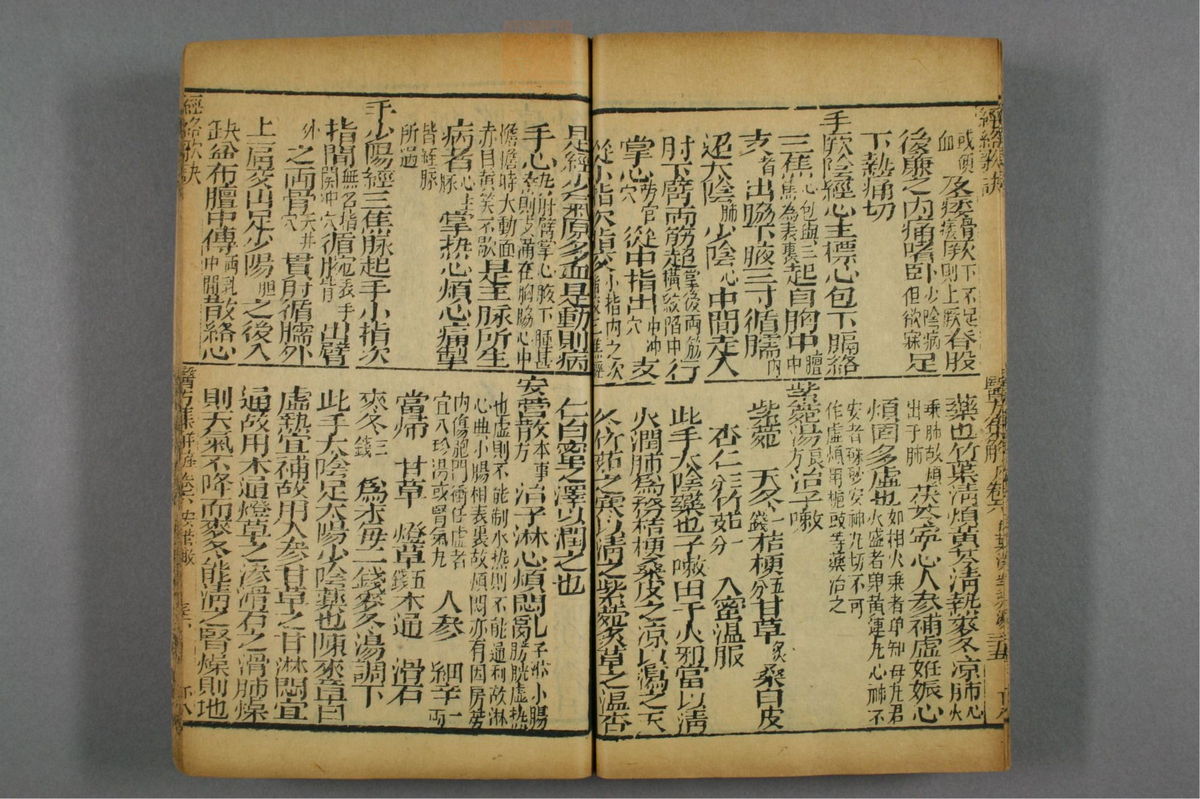 經絡歌訣
及痿骨痿厥下不足則上厥脊股
後廉之內痛嗜卧少陰病但欲寐足
下熱痛切
手厥陰經心主標心包下膈絡
三焦心包與三焦為表裏起自胸中膻中
支者出脇下腋三寸循臑內
迢太陰肺少陰心中間走入
肘下臂兩筋超掌後兩筋橫紋陷中行
掌心勞宮穴從中指出中冲穴支
從小指次指交小指內之次指交三焦經
藥也竹葉清煩黃芩清熱麥冬凉肺心火
乘肺故煩出于肺茯苓安心人參補虛妊娠心
煩固多虛也如相火盛者單知母丸君火盛者單黃連丸心神不
安者硃砂安神丸切不可作虛煩用梔豉等藥治之
紫菀湯良方治子嗽
紫菀 天冬一錢桔梗五分甘草炙桑白皮
杏仁三分竹茹二分 入蜜溫服
此手太陰藥也子嗽由于火邪當以清
火潤肺為務桔梗桑皮之凉以瀉之天
冬竹茹之凉以清之紫菀炙草之溫杏
是經少氣原多血是動則病
手心熱肘臂攣心腋下腫甚則支滿在胸脇心中
憺憺時大動面赤目黃笑不歇是主脉所生
病者心主脉掌熱心煩心痛掣
皆經脉所過
手少陽經三焦脉起手小指次
指間無名指關冲穴循腕表手背出臂
外之兩骨天井穴貫肘循臑外
上肩交出足少陽胆之後入
缺盆布膻中傳兩乳中間散絡心
經絡歌訣
仁白蜜之澤以潤之也
安營散本事方治子淋心煩悶亂子淋膀胱小腸虛熱
也虛則不能制水熱則不能通利故淋
心與小腸相表裏故煩悶亦有因房勞
內傷胞門衝任虛者宜八珍湯或腎氣丸 人參 細辛一兩
當歸 甘草 燈草五錢木通 滑石
麥冬三錢 為末每二錢麥冬湯調下
此手太陰足太陽少陰藥也陳來章曰
虛熱宜補故用人參甘草之甘淋悶宜
通故用木通燈草之滲滑石之滑肺燥
則天氣不降而麥冬能清之腎燥則地